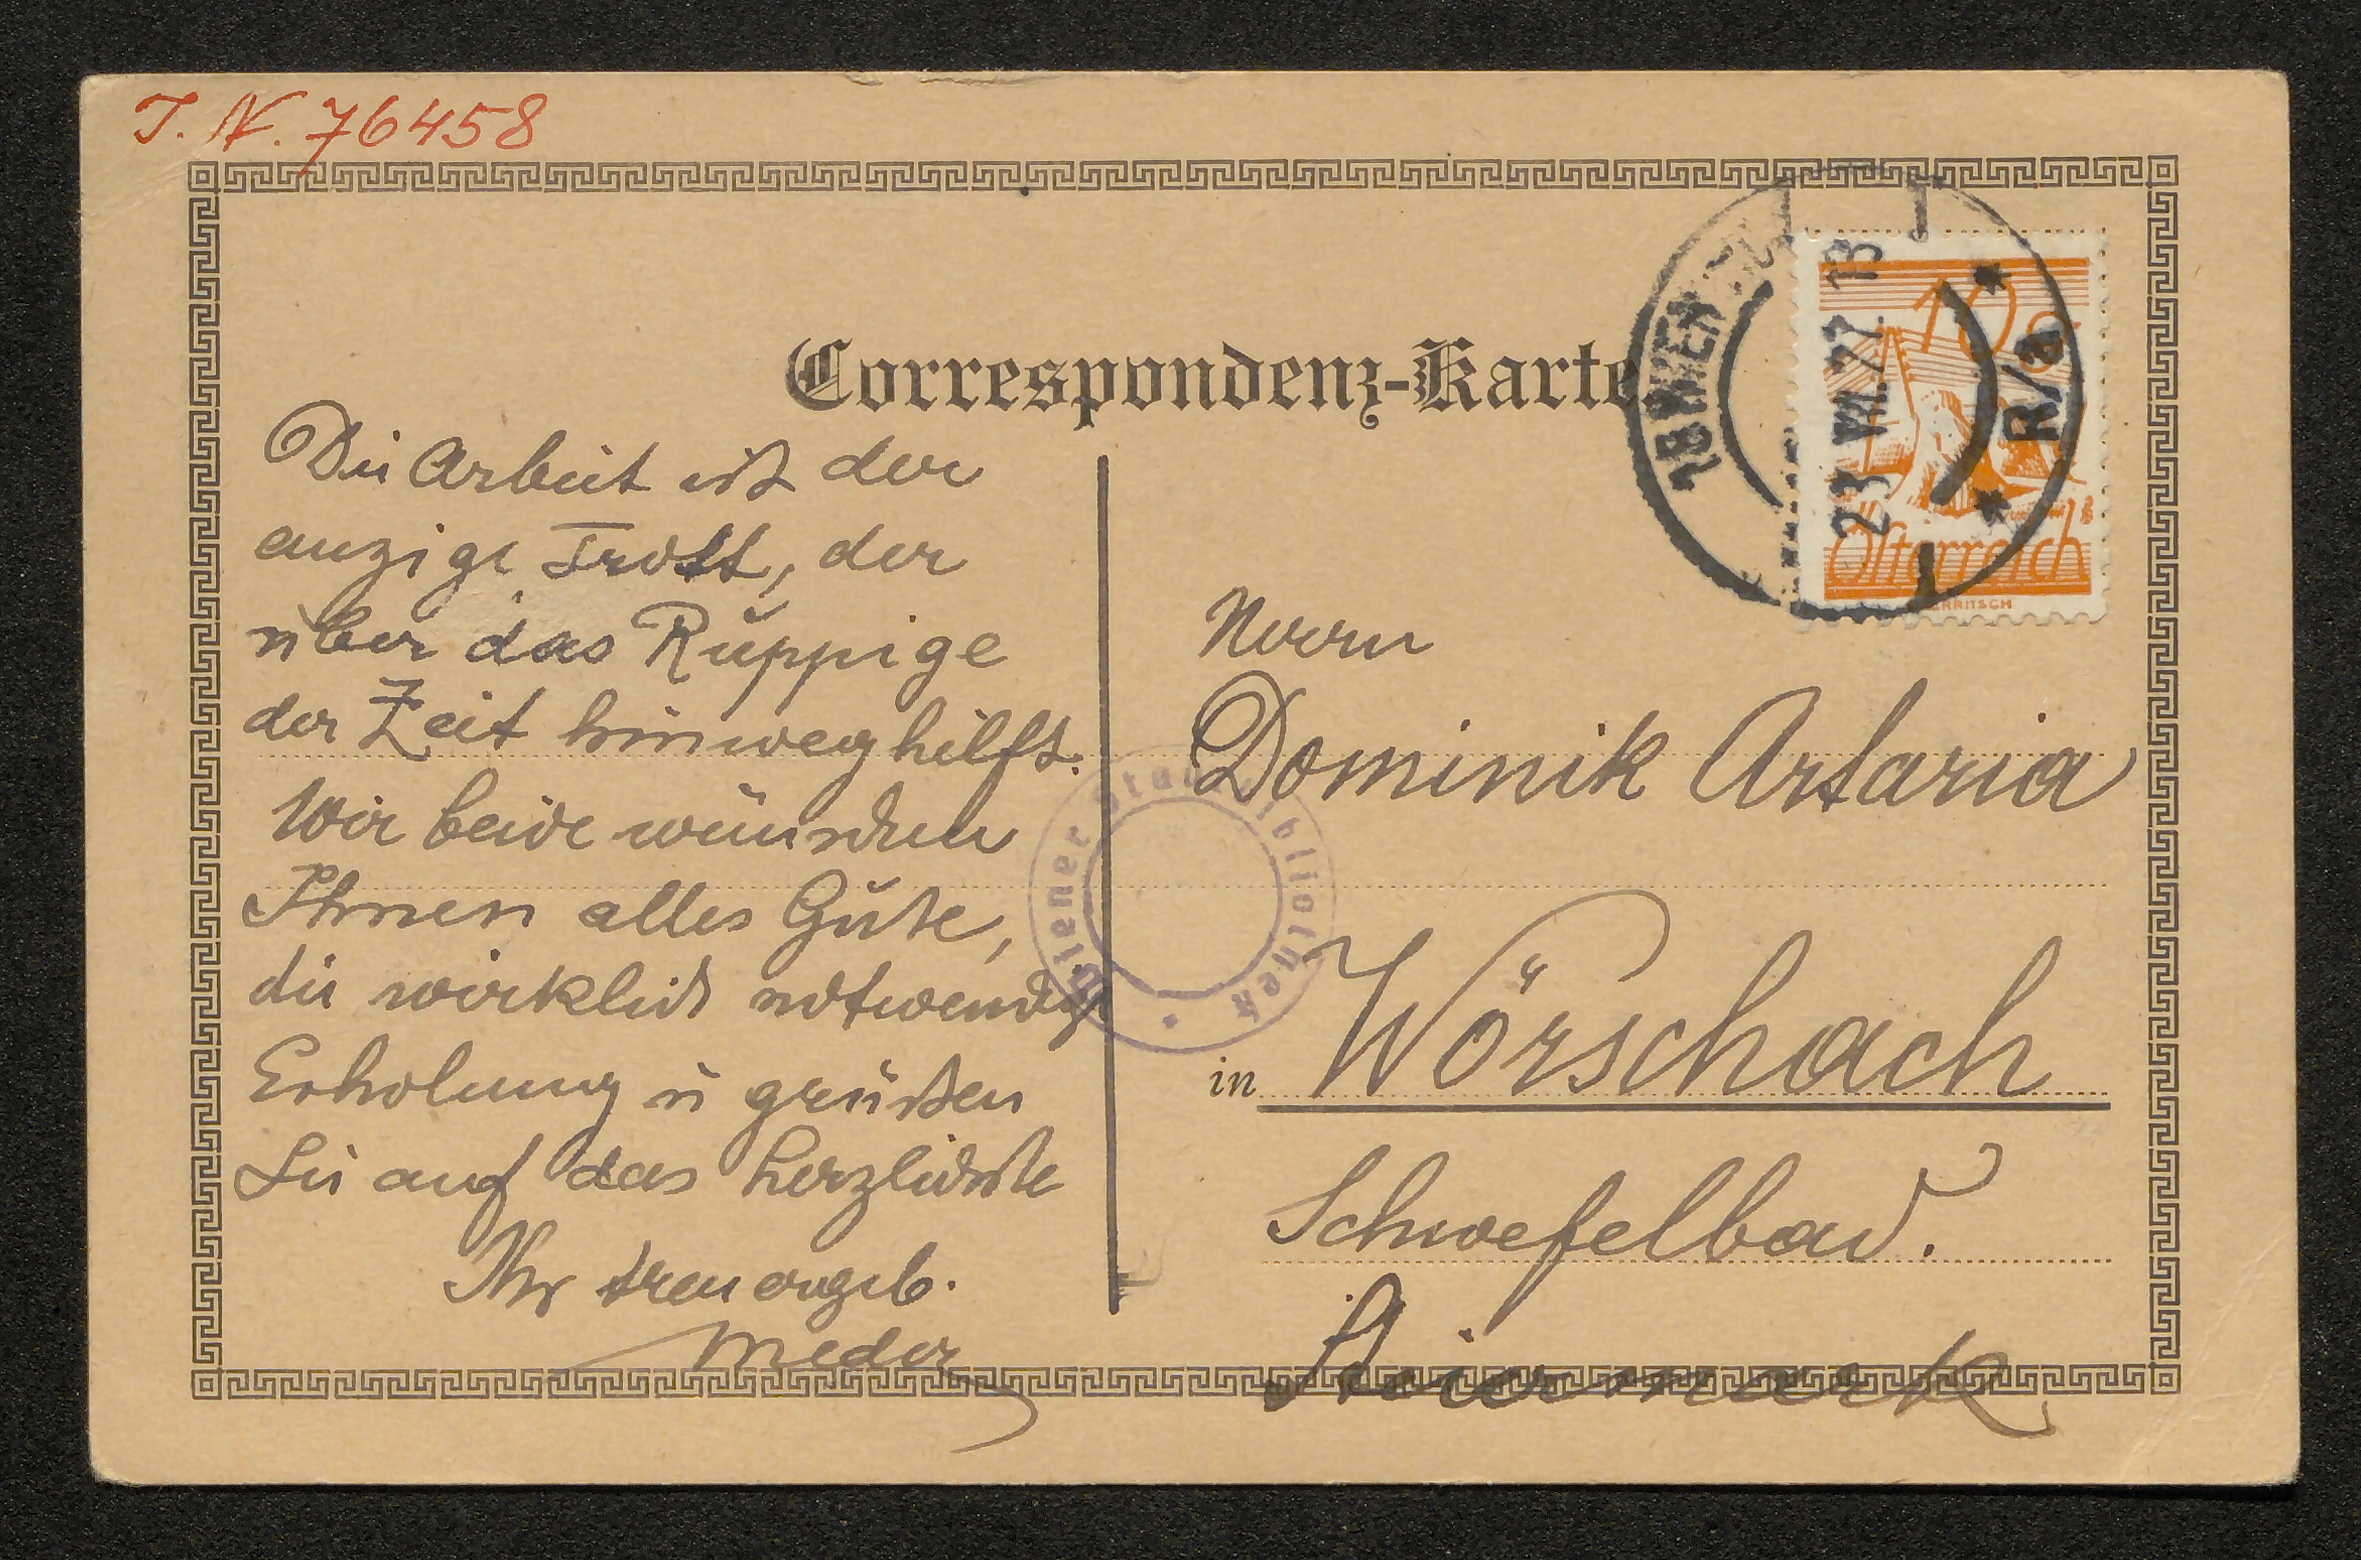 J. N. 76458
Correspondenz-Karte
18 WIEN
23 VII. 27. 13
R/a
10 g
Österreich
Die Arbeit ist der
einzige Trost, der
über das Ruppige
der Zeit hinweghilft.
Wir beide wünschen
Ihnen alles Gute,
die wirklich notwendige
Erholung u grüßen
Sie auf das herzlichste
Ihr treu ergeb.
Meder
Herrn
Dominik Artaria
in Wörschach
Schwefelbad.
Steiermark
Wiener Stadtbibliothek